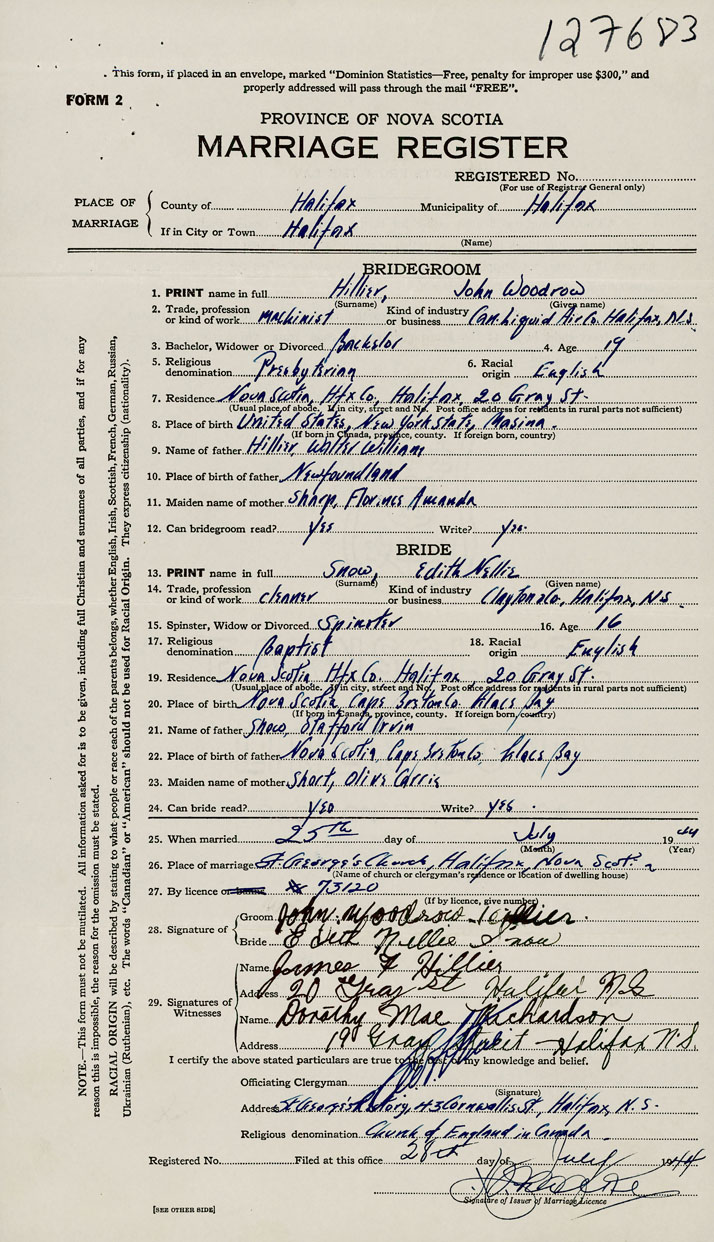 127683
This form, if placed in an envelope, marked "Dominion Statistics—Free, penalty for improper use $300," and
properly addressed will pass through the mail "FREE".
FORM 2
PROVINCE OF NOVA SCOTIA
MARRIAGE REGISTER
REGISTERED No.
(For use of Registrar General only)
PLACE OF MARRIAGE
County of Halifax Municipality of Halifax
If in City or Town Halifax
(Name)
BRIDEGROOM
1. PRINT name in full Hillier, John Woodrow
(Surname) (Given name)
2. Trade, profession or kind of work Machinist Kind of industry or business Can. Liquid Air Co. Halifax, N.S.
3. Bachelor, Widower or Divorced Bachelor 4. Age 19
5. Religious denomination Presbyterian 6. Racial origin English
7. Residence Nova Scotia, Hfx Co, Halifax, 20 Gray St.
(Usual place of abode. If in city, street and No. Post office address for residents in rural parts not sufficient)
8. Place of birth United States, New York State, Masina.
(If born in Canada, province, county. If foreign born, country)
9. Name of father Hillier, Walter William
10. Place of birth of father Newfoundland
11. Maiden name of mother Sharp, Florence Amanda
12. Can bridegroom read? Yes Write? Yes.
BRIDE
13. PRINT name in full Snow, Edith Nellie
(Surname) (Given name)
14. Trade, profession or kind of work cleaner Kind of industry or business Clayton Co, Halifax, N.S.
15. Spinster, Widow or Divorced Spinster 16. Age 16
17. Religious denomination Baptist 18. Racial origin English
19. Residence Nova Scotia Hfx Co. Halifax, 20 Gray St.
(Usual place of abode. If in city, street and No. Post office address for residents in rural parts not sufficient)
20. Place of birth Nova Scotia, Cape Breton Co. Bay
(If born in Canada, province, county. If foreign born, country)
21. Name of father Snow, Stafford Irvin
22. Place of birth of father Nova Scotia, Cape Breton Co. Bay
23. Maiden name of mother Short, Olive Carrie
24. Can bride read? Yes Write? Yes.
25. When married 25th day of July 1944
(Month) (Year)
26. Place of marriage St George's Church, Halifax, Nova Scotia
(Name of church or clergyman's residence or location of dwelling house)
27. By licence or 73120
(If by licence, give number)
28. Signature of
Groom John Woodrow Hillier.
Bride Edith Nellie Snow
29. Signatures of Witnesses
Name James F Hillier
Address 20 Gray St Halifax N.S
Name Dorothy Mae Richardson
Address 19 Gray Street Halifax N.S.
I certify the above stated particulars are true to the best of my knowledge and belief.
Officiating Clergyman
(Signature)
Address St George's Rectory, 43 Cornwallis St, Halifax, N.S.
Religious denomination Church of England in Canada
Registered No. Filed at this office 28th day of July 1944
Signature of Issuer of Marriage Licence
[SEE OTHER SIDE]
NOTE.—This form must not be mutilated. All information asked for is to be given, including full Christian and surnames of all parties, and if for any
reason this is impossible, the reason for the omission must be stated.
RACIAL ORIGIN will be described by stating to what people or race each of the parents belongs, whether English, Irish, Scottish, French, German, Russian,
Ukrainian (Ruthenian), etc. The words "Canadian" or "American" should not be used for Racial Origin. They express citizenship (nationality).